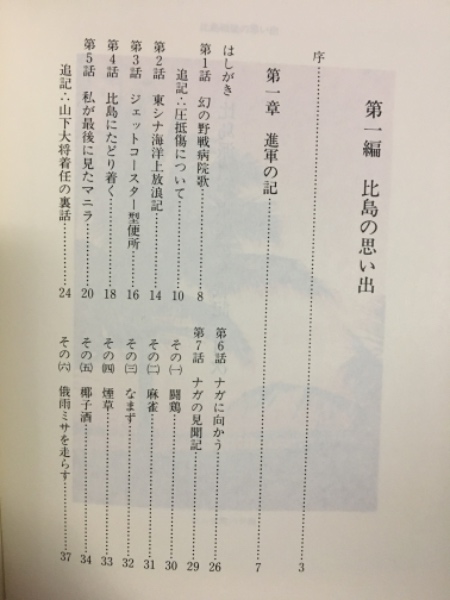 第一編　比島の思い出
序……………………………3
第一章　進軍の記……………………………7
はしがき
第1話　幻の野戦病院歌……………8
追記∴圧抵傷について……………10
第2話　東シナ海洋上放浪記……………14
第3話　ジェットコースター型便所……………16
第4話　比島にたどり着く……………18
第5話　私が最後に見たマニラ……………20
追記∴山下大将着任の裏話……………24
第6話　ナガに向かう……………26
第7話　ナガの見聞記……………29
その㈠　闘鶏……………30
その㈡　麻雀……………31
その㈢　なまず……………32
その㈣　煙草……………33
その㈤　椰子酒……………34
その㈥　俄雨ミサを走らす……………37